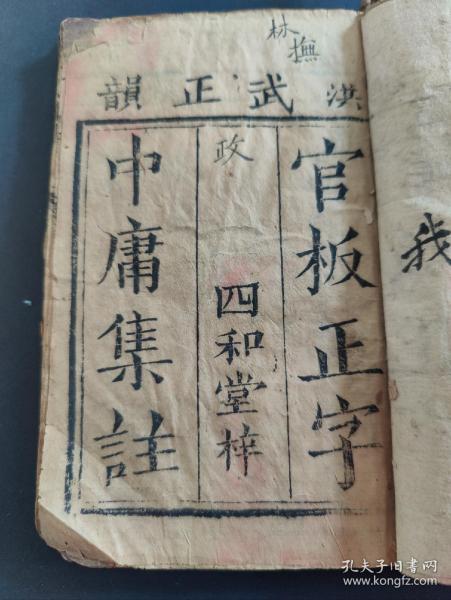 林撫
洪武正韻
官板正字
政
四和堂梓
中庸集註
我
孔夫子旧书网
www.kongfz.com